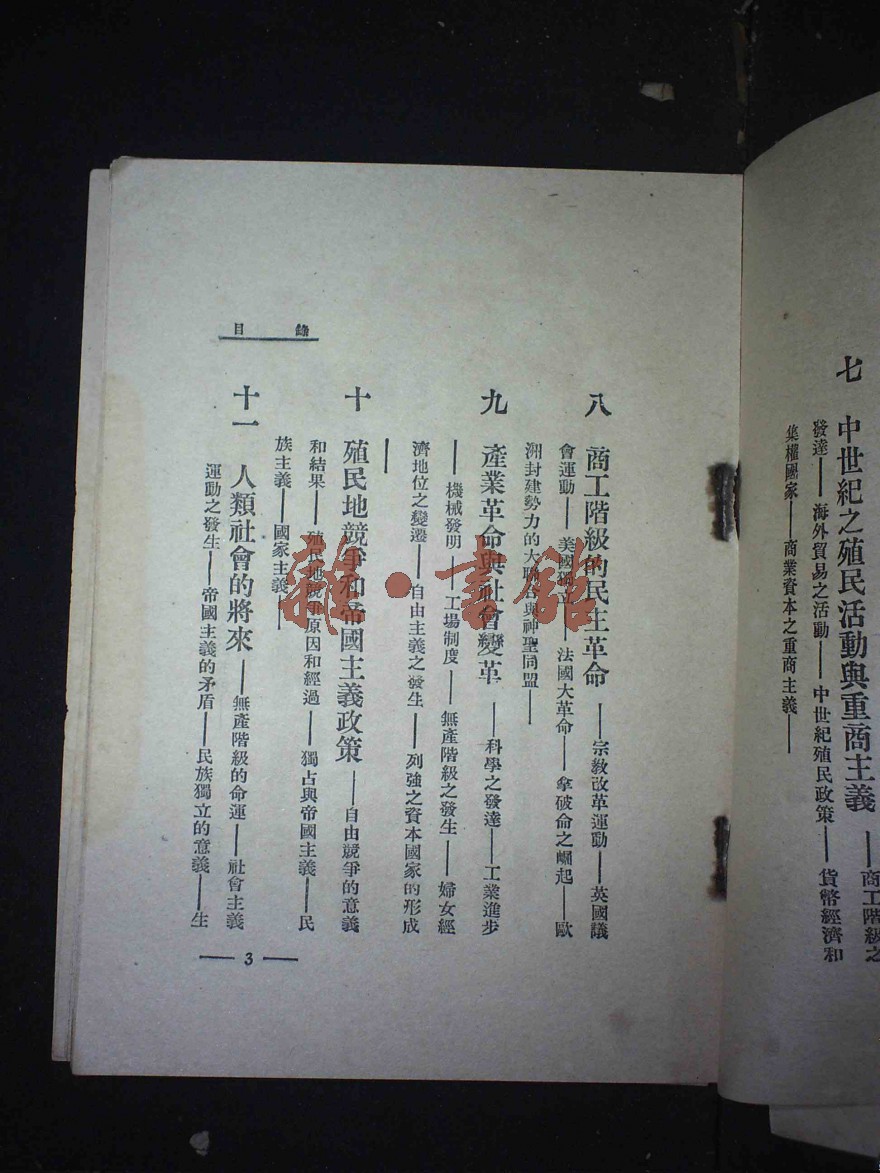 七　中世紀之殖民活動與重商主義——商工階級之
發達——海外貿易之活動——中世紀殖民政策——貨幣經濟和
集權國家——商業資本之重商主義——
目錄
八　商工階級的民主革命——宗教改革運動——英國議
會運動——美國獨立——法國大革命——拿破命之崛起——歐
洲封建勢力的大聯合與神聖同盟——
九　產業革命與社會變革——科學之發達——工業進步
——機械發明——工場制度——無產階級之發生——婦女經
濟地位之變遷——自由主義之發生——列強之資本國家的形成
——
十　殖民地競爭和帝國主義政策——自由競爭的意義
和結果——殖民地競爭原因和經過——獨占與帝國主義——民
族主義——國家主義——
十一　人類社會的將來——無產階級的命運——社會主義
運動之發生——帝國主義的矛盾——民族獨立的意義——生
— 3 —
雜・書館